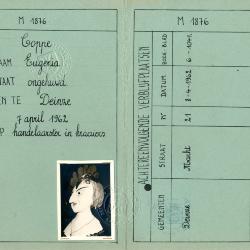 M 1876
Coppe
AAM Eugenia
AAT ongehuwd
EN TE Deinze
7 april 1962
P handelaarster in kraciers
M 1876
ACHTEREENVOLGENDE VERBLIJFPLAATSEN
GEMEENTEN STRAAT N° DATUM BOEK-BLAD
Deinze Markt 21 8-4-1962